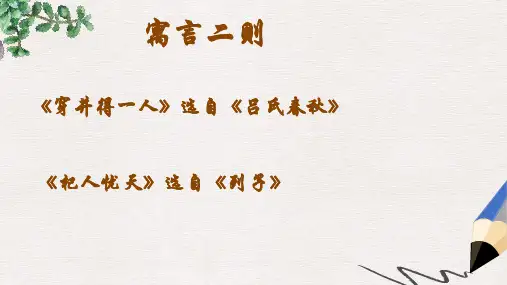 寓言二则
《穿井得一人》选自《吕氏春秋》
《杞人忧天》选自《列子》